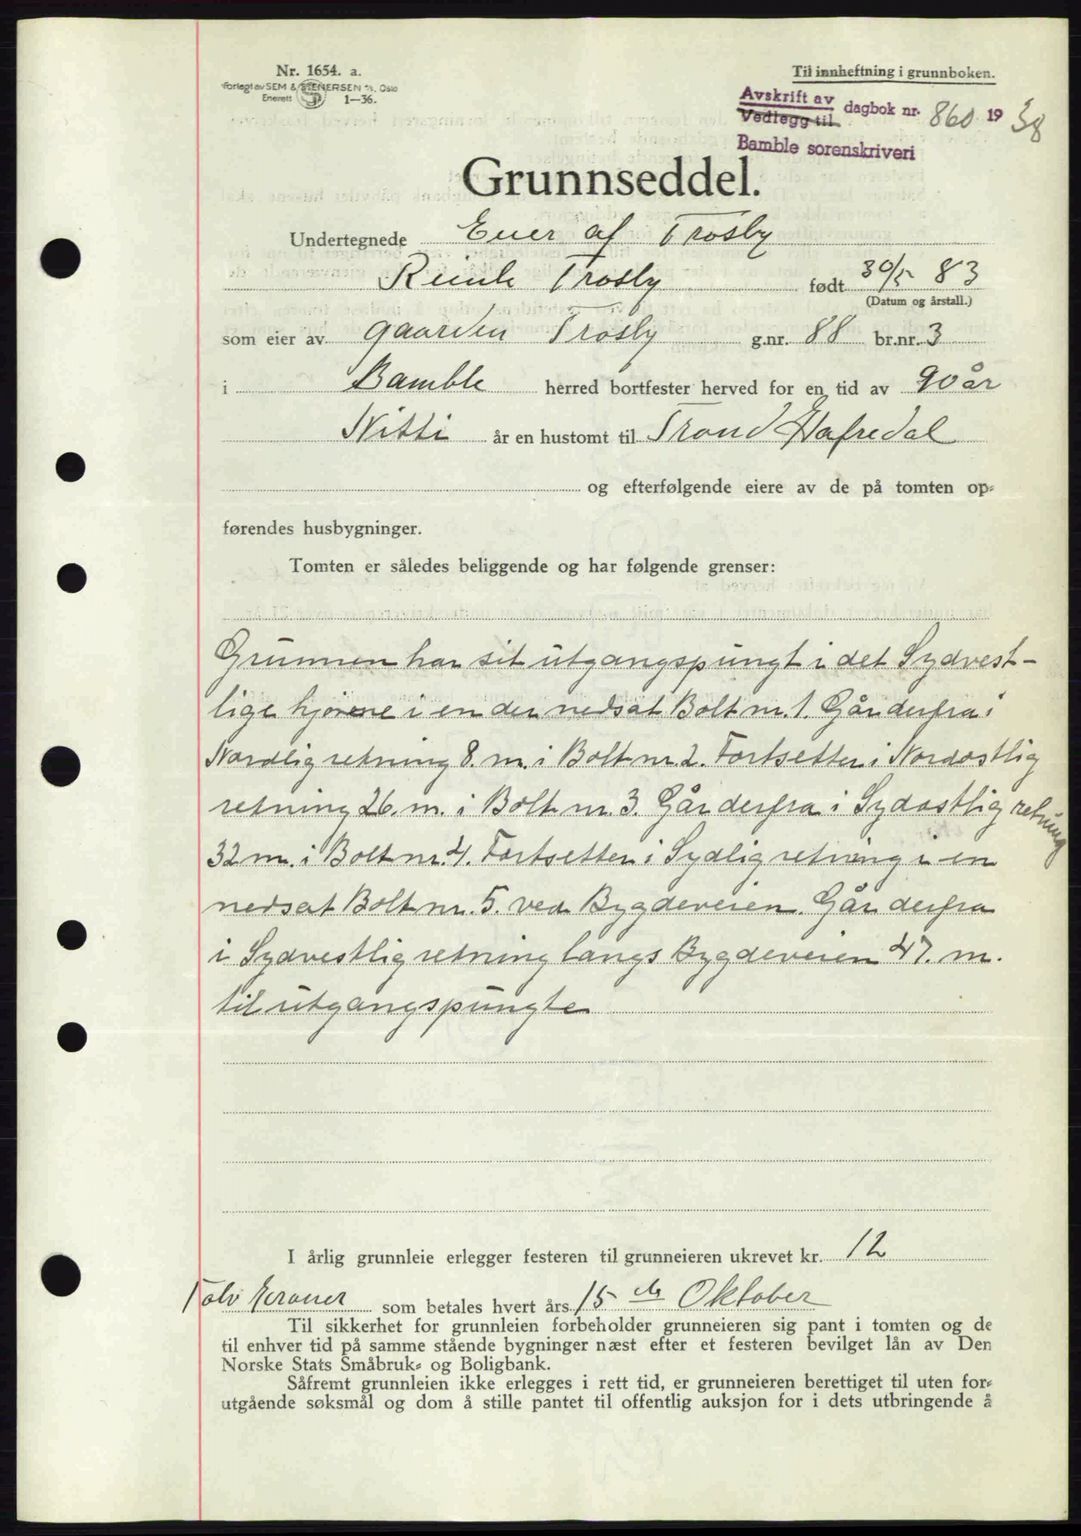 Nr. 1654. a.
Forlegt av SEM & STENERSEN A/S, Oslo
Enerett 1-36.
Til innheftning i grunnboken.
Avskrift av
Vedlegg til dagbok nr. 860 1938
Bamble sorenskriveri
Grunnseddel.
Undertegnede Eier af Trosby
Trosby født 30/5 83
(Datum og årstall.)
som eier av gaarden Trosby g.nr. 88 br.nr. 3
i Bamble herred bortfester herved for en tid av 90 år
Nitti år en hustomt til Trond Hafredal
og efterfølgende eiere av de på tomten op-
førendes husbygninger.
Tomten er således beliggende og har følgende grenser:
Grunnen har sit utgangspungt i det Sydvest-
lige hjørene i en der nedsat Bolt nr. 1. Går derfra i
Nordlig retning 8. m. i Bolt nr. 2. Fortsetter i Nordøstlig
retning 26. m. i Bolt nr. 3. Går derfra i Sydøstlig retning
32 m. i Bolt nr. 4. Fortsetter i Sydlig retning i en
nedsat Bolt nr. 5. ved Bygdeveien. Går derfra
i Sydvestlig retning langs Bygdeveien 47. m.
til utgangspungte
I årlig grunnleie erlegger festeren til grunneieren ukrevet kr. 12
Tolv Kroner som betales hvert års 15 de Oktober
Til sikkerhet for grunnleien forbeholder grunneieren sig pant i tomten og de
til enhver tid på samme stående bygninger næst efter et festeren bevilget lån av Den
Norske Stats Småbruk- og Boligbank.
Såfremt grunnleien ikke erlegges i rett tid, er grunneieren berettiget til uten for-
utgående søksmål og dom å stille pantet til offentlig auksjon for i dets utbringende å